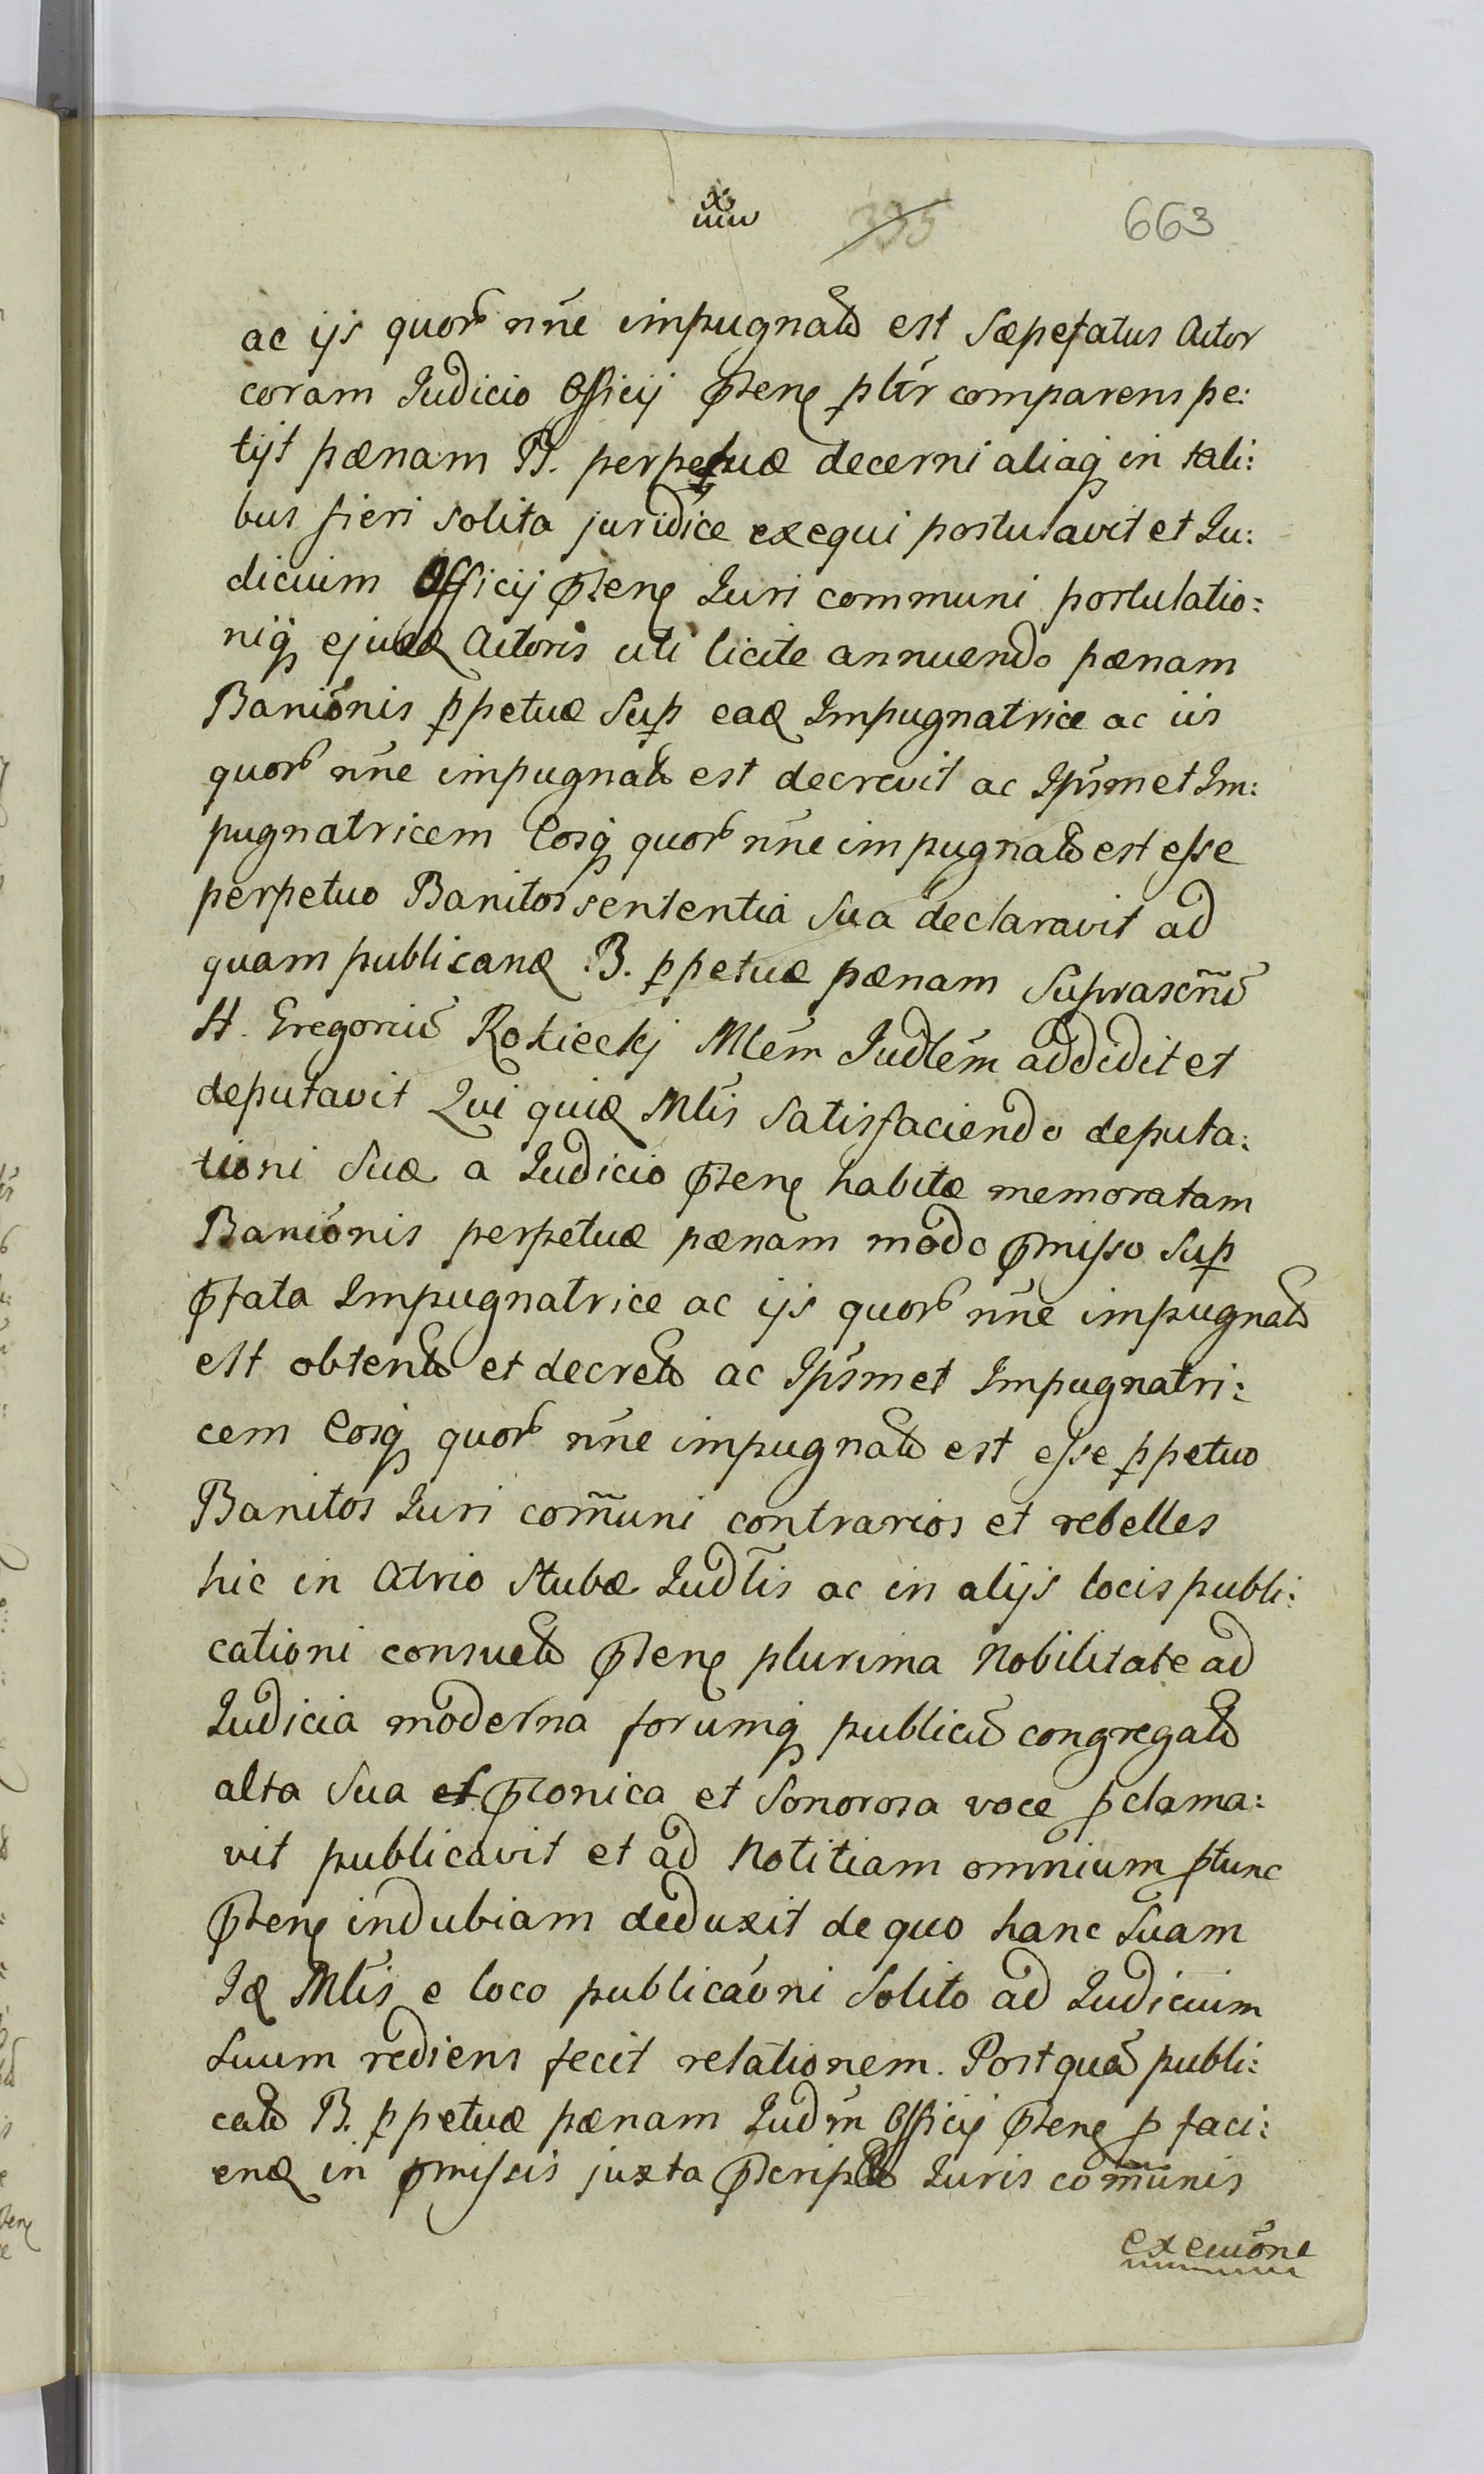 663
ac ijs quor̃ nñe impugnatɔ est Sæpefatus Actor
coram Judicio Officij p̃tene p̱ltr comparens pe:
tijt pænam B. perpetuæ decerni aliaq̨ in tali:
bus fieri Solita juridice exequi postulavit et Ju:
dicium Officij p̃tene Juri communi postulatio:
niq̨ ejusdę Actoris uti licite annuendo pænam
Baniónis p̱petuæ Sup̱ eadę Impugnatrice ac iis
quor̃ nñe impugnatɔ est decrevit ac Ipśmet Im:
pugnatricem Eosq̨ quor̃ nñe impugnatɔ est esse
perpetuo Banitos sententia Sua declaravit ad
quam publicandę B. p̱petuæ pænam Suprascr̃nũ
H. Gregoriũ Rokieckj Mlém Judlém addidit et
deputavit Qui quidę Mlis Satisfaciendo deputa:
tioni Suæ a Judicio p̃tene habitæ memoratam
Baniónis perpetuæ pænam modo p̃misso Sup̱
p̃fata Impugnatrice ac ijs quor̃ nñe impugnatɔ
est obtentɔ et decretɔ ac Ipśmet Impugnatri:
cem Eosq̨ quor̃ nñe impugnatɔ est esse p̱petuo
Banitos Juri com̃uni contrarios et rebelles
hic in Atrio Stubæ Judlis ac in alijs locis publi:
cationi consuetɔ p̃tene plurima Nobilitate ad
Judicia moderna forumq̨ publicũ congregatɔ
alta Sua p̃conica et Sonorosa voce p̱clama:
vit publicavit et ad Notitiam omnium p̱tunc
p̃tene indubiam deduxit de quo hanc Suam
Idę Mlis e loco publicaóni Solito ad Judicium
Suum rediens fecit relationem. Post quã publi:
catɔ B. p̱petuæ pænam Judm̃ Officij p̃tene p̱ faci:
endę in p̃missis juxta p̃scriptɔ Juris com̃unis
execuónē